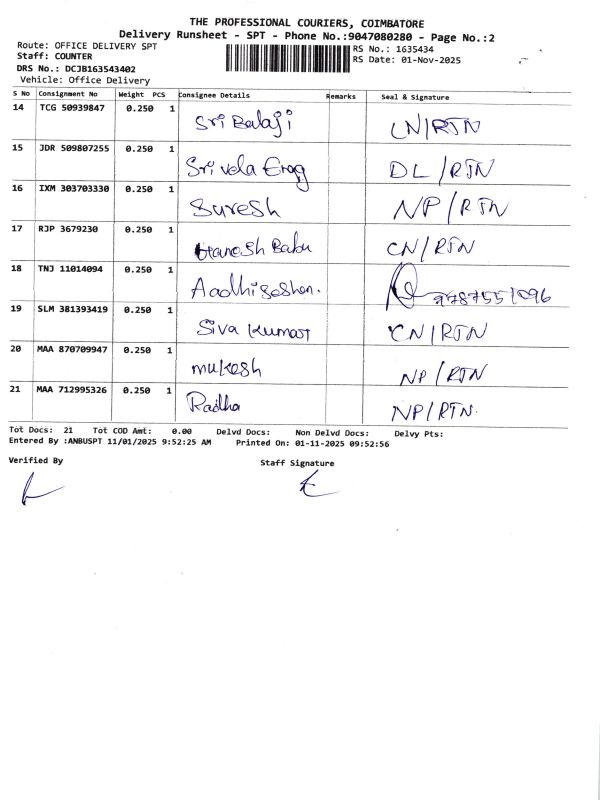 THE PROFESSIONAL COURIERS, COIMBATORE
Delivery Runsheet - SPT - Phone No.:9047080280 - Page No.:2
Route: OFFICE DELIVERY SPT RS No.: 1635434
Staff: COUNTER RS Date: 01-Nov-2025
DRS No.: DCJB163543402
Vehicle: Office Delivery
S No Consignment No Weight PCS Consignee Details Remarks Seal & Signature
14 TCG 50939847 0.250 1 Sri Balaji CN/RTN
15 JDR 509807255 0.250 1 Sri vela DL/RTN
16 IXM 303703330 0.250 1 Suresh NP/RTN
17 RJP 3679230 0.250 1 Ganesh Babu CN/RTN
18 TNJ 11014094 0.250 1 9787551096
19 SLM 381393419 0.250 1 Siva Kumar CN/RTN
20 MAA 870709947 0.250 1 mukesh NP/RTN
21 MAA 712995326 0.250 1 Radha NP/RTN.
Tot Docs: 21 Tot COD Amt: 0.00 Delvd Docs: Non Delvd Docs: Delvy Pts:
Entered By :ANBUSPT 11/01/2025 9:52:25 AM Printed On: 01-11-2025 09:52:56
Verified By Staff Signature